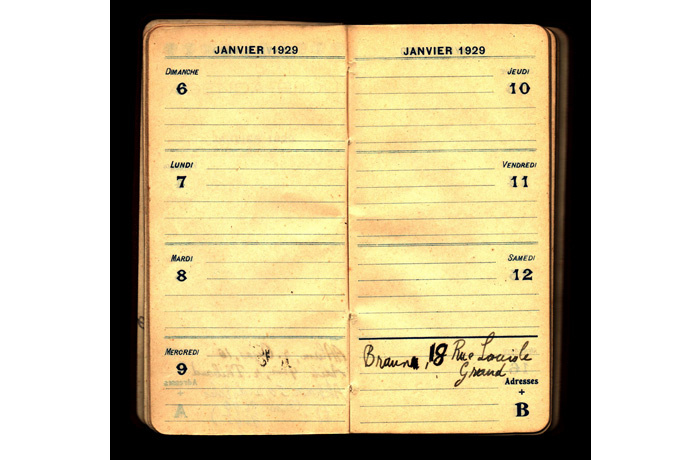 JANVIER 1929
DIMANCHE
6
LUNDI
7
MARDI
8
MERCREDI
9
Adresses
+
A
JANVIER 1929
JEUDI
10
VENDREDI
11
SAMEDI
12
Braun, 18 Rue Louis le
Grand
Adresses
+
B